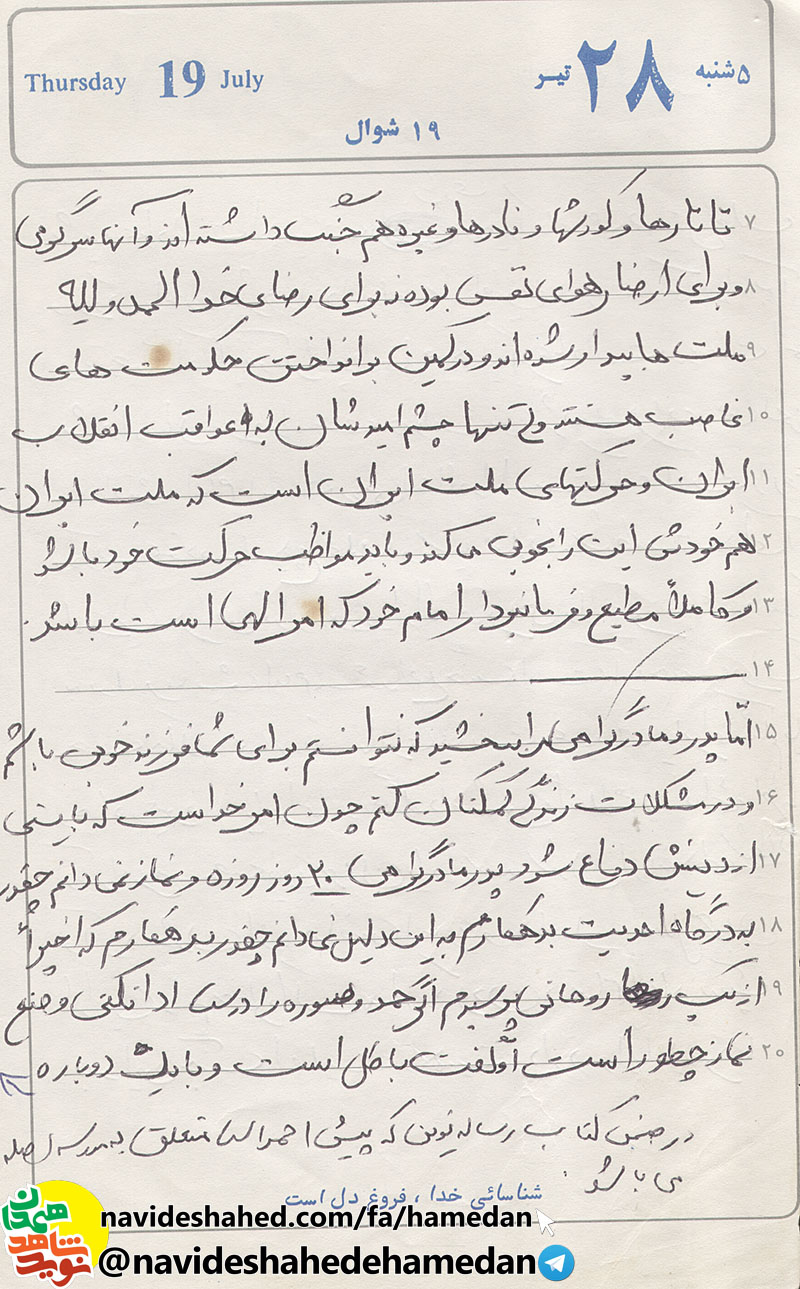 Thursday 19 July
۵شنبه ۲۸ تیر
۱۹ شوال
۷ تاتارها و کورشها و نادرها و غیره هم جنگ داشته اند و آنها سرگرمی
۸ و برای ارضا هوای نفس بوده نه برای رضای خدا الحمدولیله
۹ ملت ها بیدار شده اند و در کمین برانداختن حکومت های
۱۰ غاصب هستند ولی تنها چشم امیدشان به عواقب انقلاب
۱۱ ایران و حرکتهای ملت ایران است که ملت ایران
۱۲ هم خودش این را بخوبی می کند و باید مواظب حرکت خود باشد
۱۳ و کاملاً مطیع و فرمانبردار امام خود که امر الهی است باشد.
۱۴
۱۵ امّا پدر و مادر گرامی مرا ببخشید که نتوانستم برای شما فرزند خوبی باشم
۱۶ و در مشکلات زندگی کمکتان کنم چون امر خداست که بایستی
۱۷ از دینش دفاع شود پدر و مادر گرامی ۲۰ روز روزه و نماز نمی دانم چقدر
۱۸ به درگاه احدیت بدهکارم به این دلیل نمی دانم چقدر بدهکارم که اخیراً
۱۹ از یک روحانی پرسیدم اگر حمد و سوره را درست ادا نکنی وضع
۲۰ نماز چطور است او گفت باطل است و باید دوباره
در ضمن کتاب رساله نوین که پیش احمد است متعلق به مدرسه
می باشد.
شناسائی خدا ، فروغ دل است
نوید شاهد همدان
navideshahed.com/fa/hamedan
@navideshahedehamedan